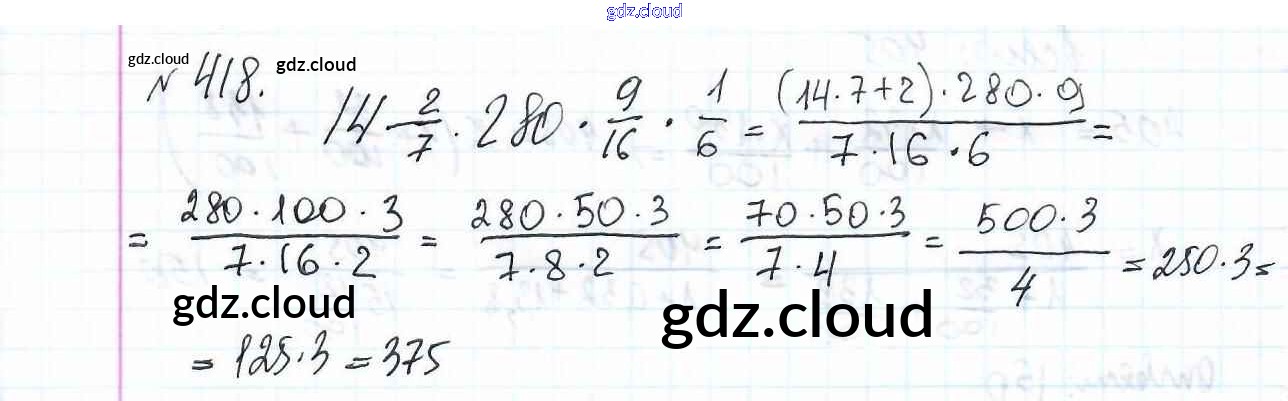 gdz.cloud
gdz.cloud
№ 418. gdz.cloud
14 2/7 · 280 · 9/16 · 1/6 = (14·7+2)·280·9 / 7·16·6 =
= 280·100·3 / 7·16·2 = 280·50·3 / 7·8·2 = 70·50·3 / 7·4 = 500·3 / 4 = 250·3 =
gdz.cloud
gdz.cloud
= 125·3 = 375